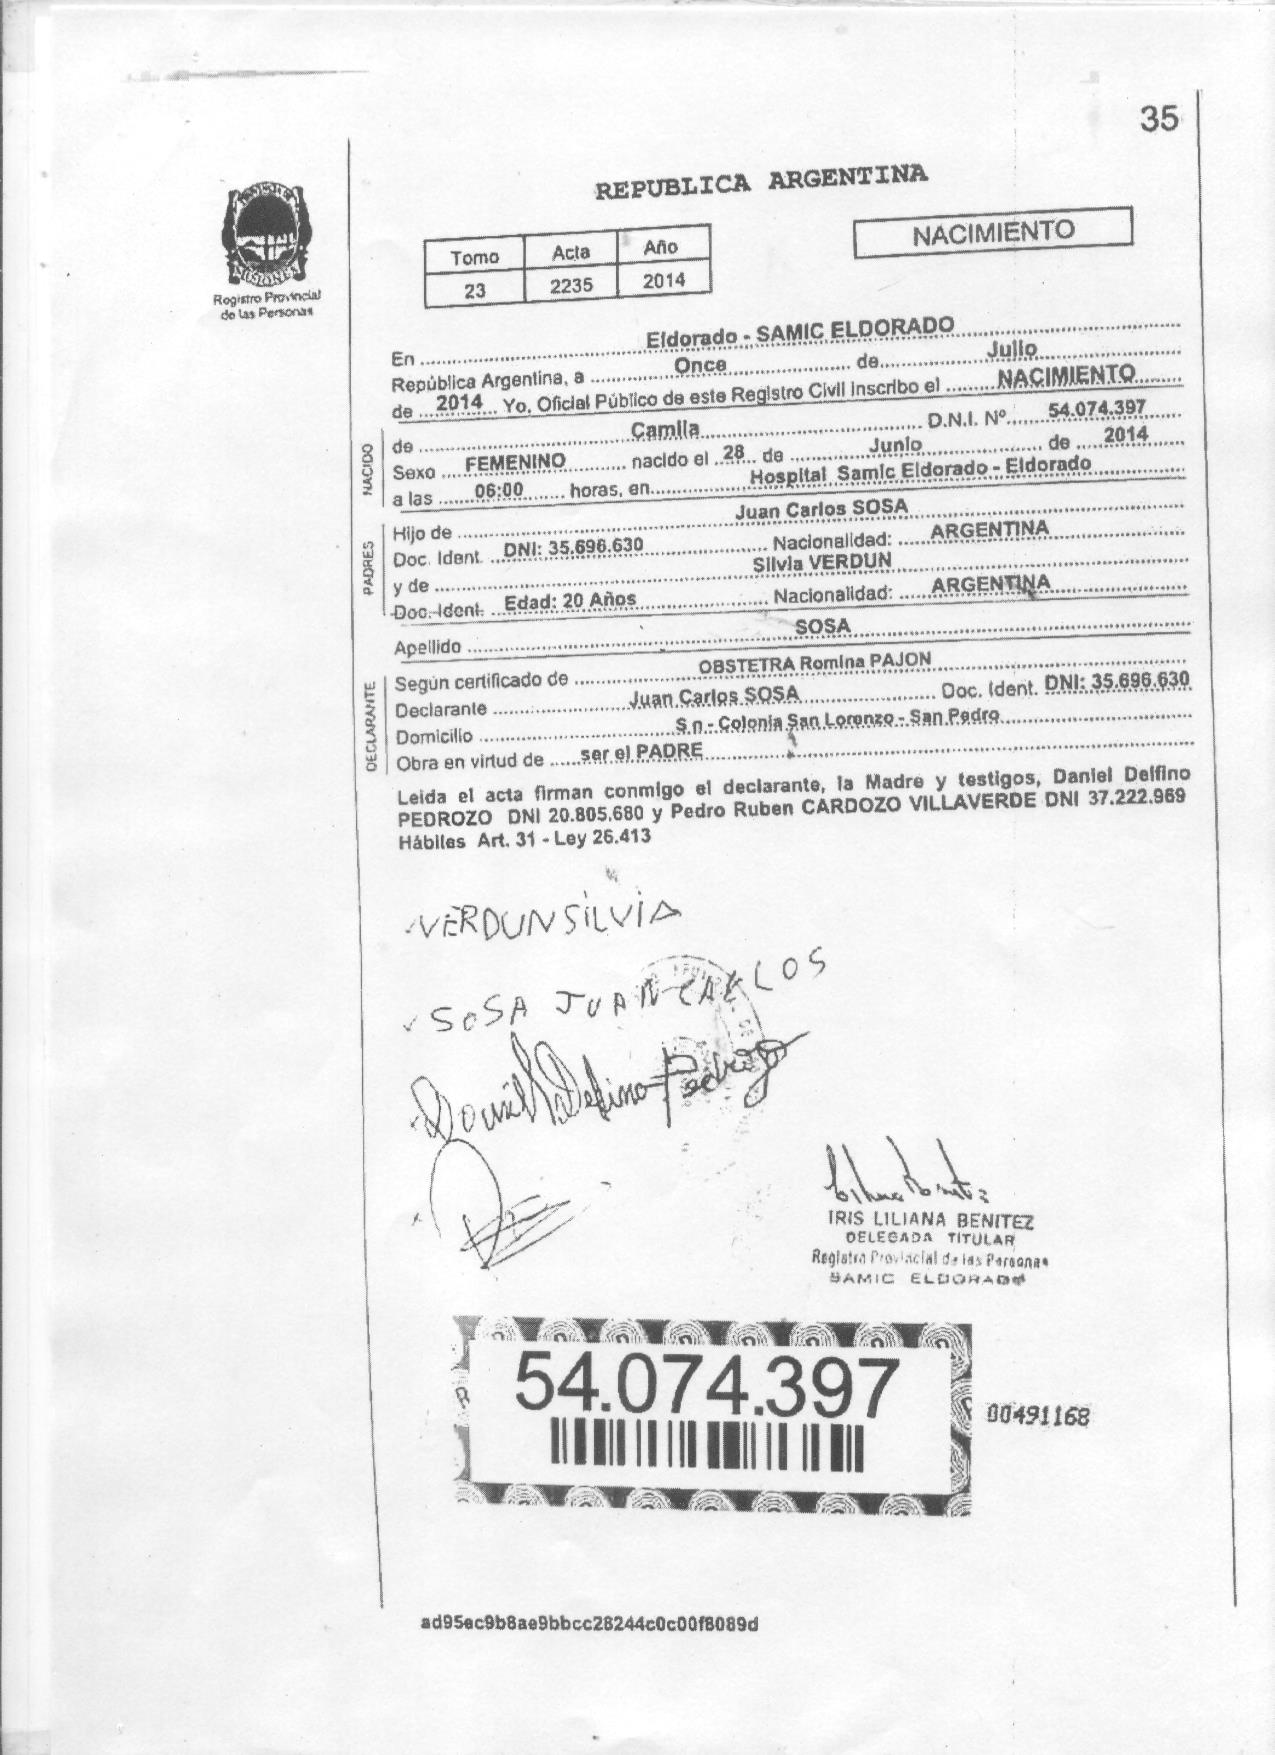 35
REPUBLICA ARGENTINA
MISIONES
Registro Provincial
de las Personas
NACIMIENTO
Tomo Acta Año
23 2235 2014
En Eldorado - SAMIC ELDORADO
República Argentina, a Once de Julio
de 2014 Yo. Oficial Público de este Registro Civil Inscribo el NACIMIENTO
NACIDO
de Camila D.N.I. Nº 54.074.397
Sexo FEMENINO nacido el 28 de Junio de 2014
a las 06:00 horas, en Hospital Samic Eldorado - Eldorado
PADRES
Hijo de Juan Carlos SOSA
Doc. Ident. DNI: 35.696.630 Nacionalidad: ARGENTINA
y de Silvia VERDUN
Doc. Ident. Edad: 20 Años Nacionalidad: ARGENTINA
Apellido SOSA
DECLARANTE
Según certificado de OBSTETRA Romina PAJON
Declarante Juan Carlos SOSA Doc. Ident. DNI: 35.696.630
Domicilio S.n - Colonia San Lorenzo - San Pedro
Obra en virtud de ser el PADRE
Leida el acta firman conmigo el declarante, la Madre y testigos, Daniel Delfino
PEDROZO DNI 20.805.680 y Pedro Ruben CARDOZO VILLAVERDE DNI 37.222.969
Hábiles Art. 31 - Ley 26.413
VERDUN SILVIA
SOSA JUAN CARLOS
Daniel Delfino Pedrozo
IRIS LILIANA BENITEZ
DELEGADA TITULAR
Registro Provincial de las Personas
SAMIC ELDORADO
54.074.397
00491168
ad95ec9b8ae9bbcc28244c0c00f8089d